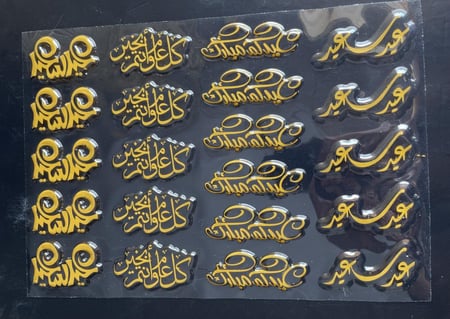 عيد سعيد
عيد سعيد
عيد سعيد
عيد سعيد
عيد سعيد
عيدكم مبارك
عيدكم مبارك
عيدكم مبارك
عيدكم مبارك
عيدكم مبارك
عيدكم مبارك
كل عام وأنتم بخير
كل عام وأنتم بخير
كل عام وأنتم بخير
كل عام وأنتم بخير
كل عام وأنتم بخير